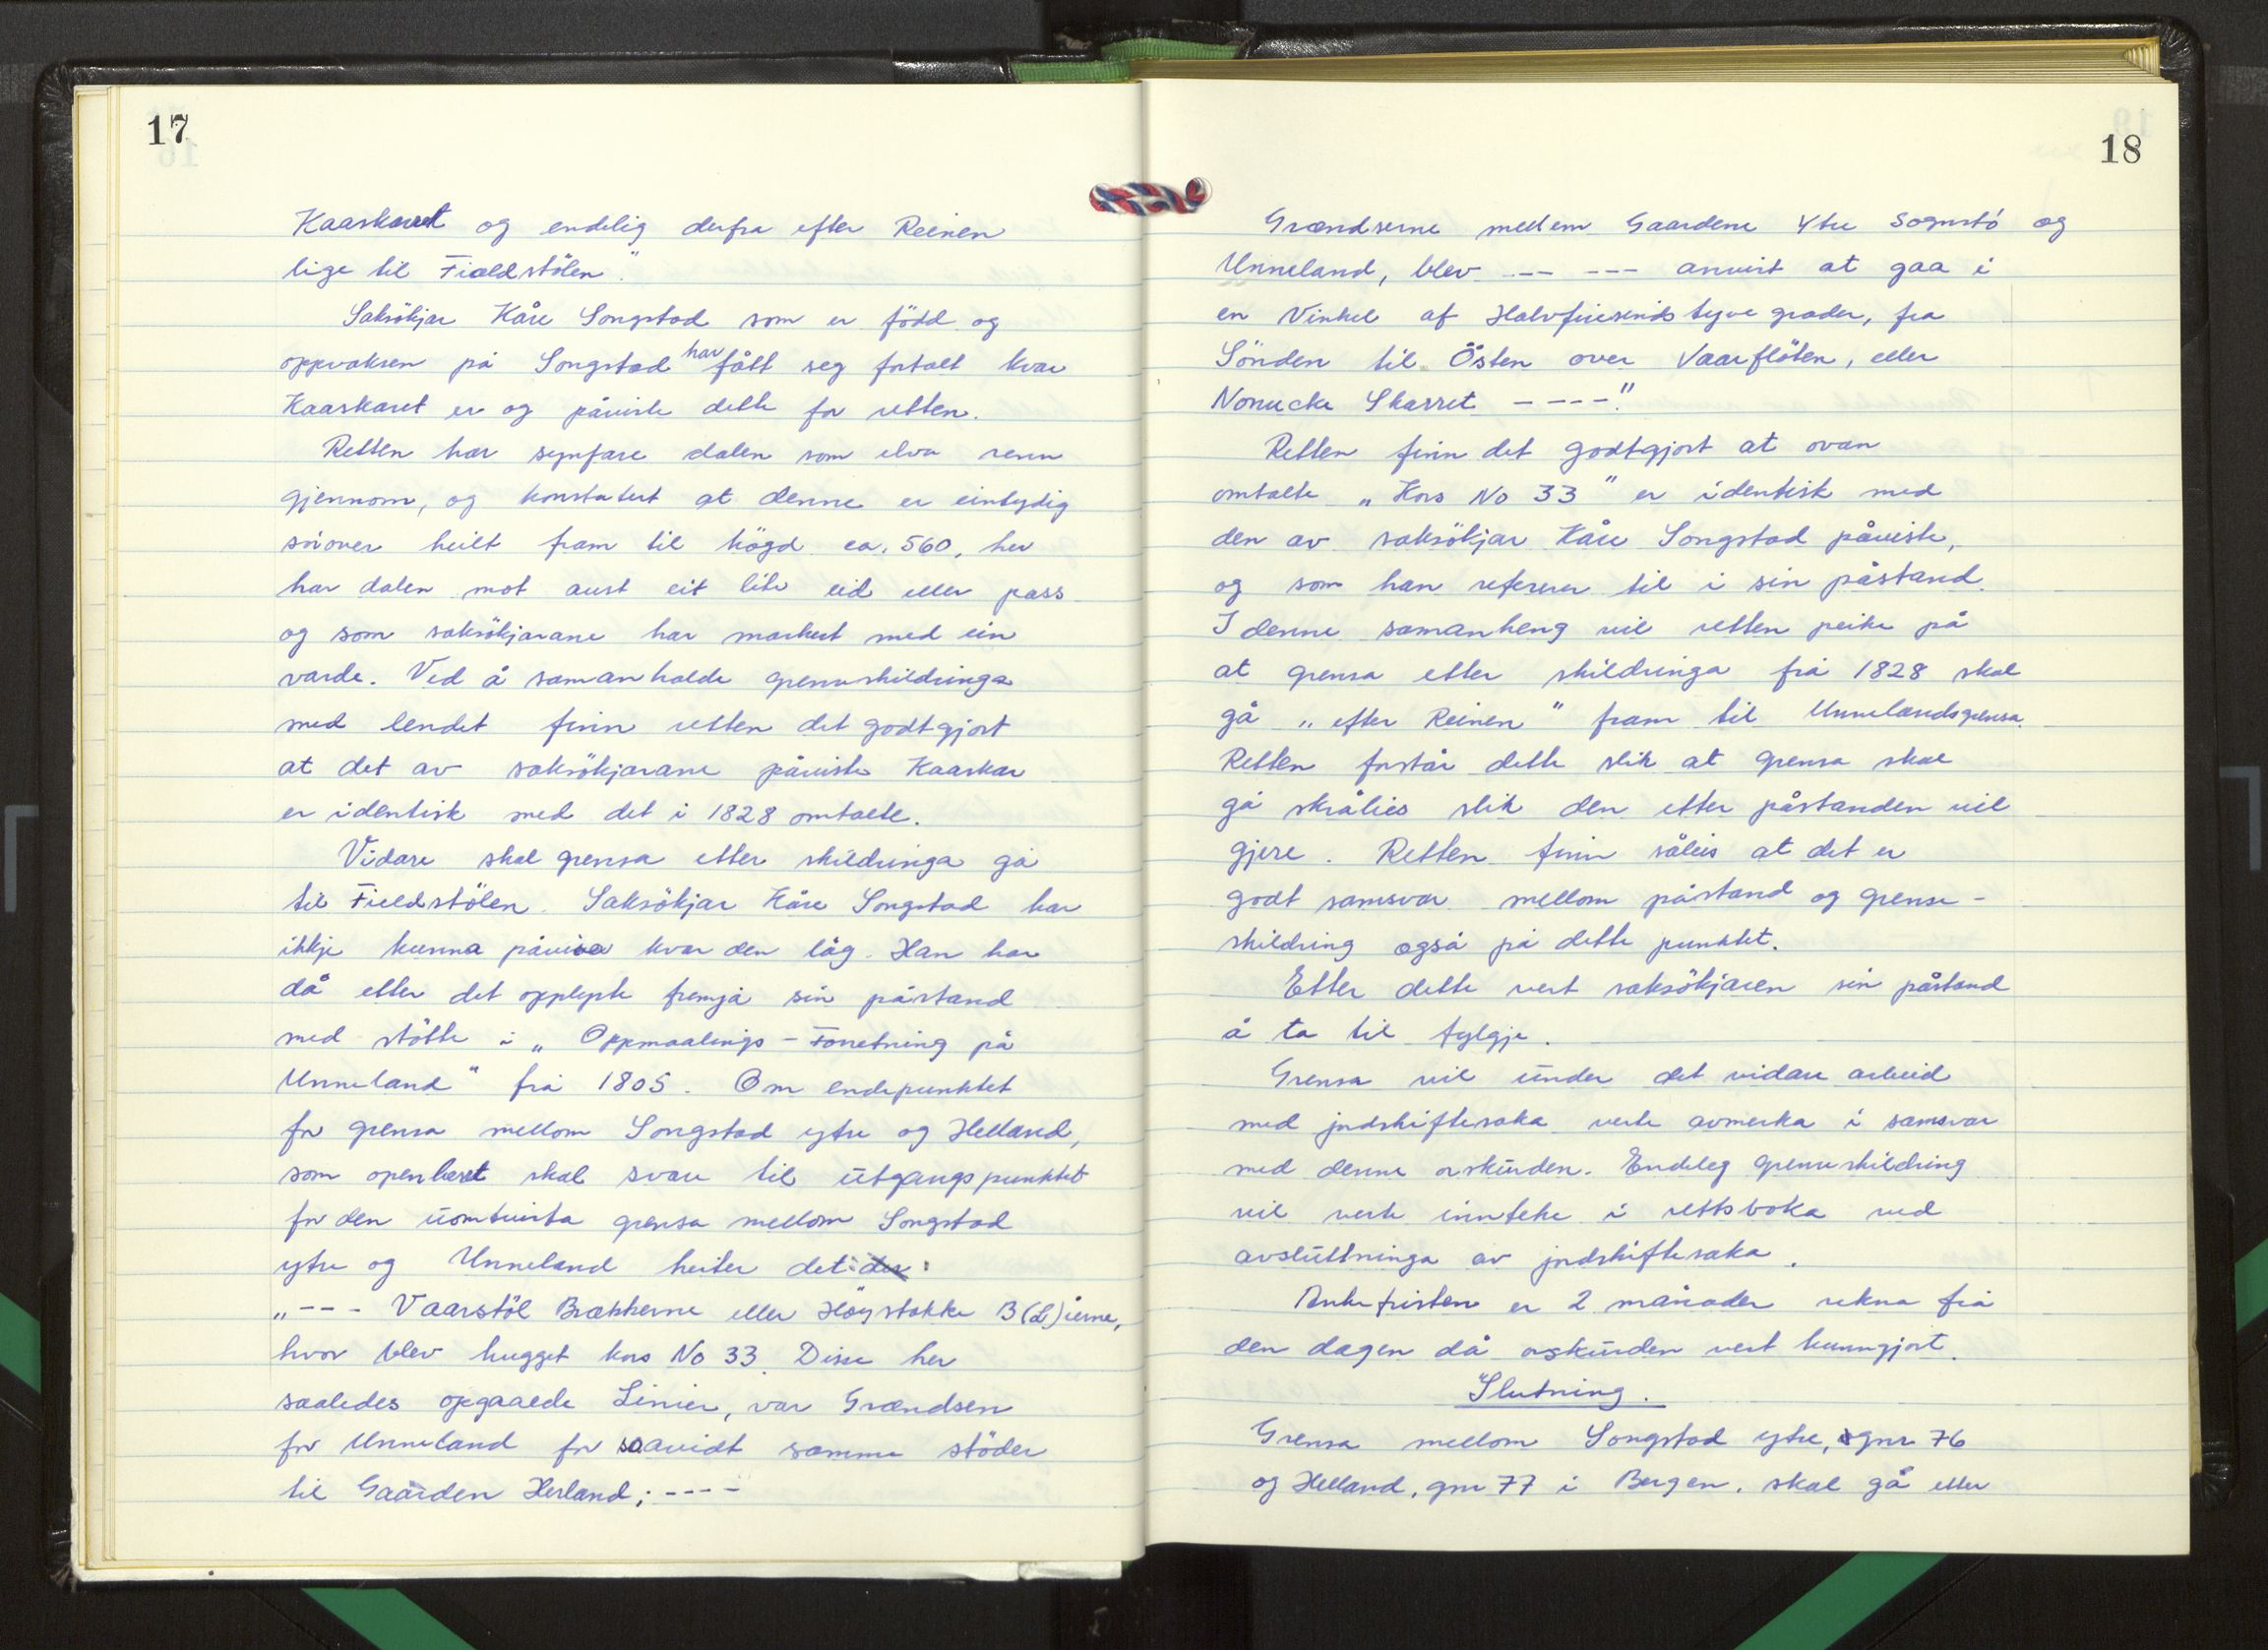 17
Kaaskaret og endelig derfra efter Reinen
lige til Fieldstölen."
Saksökjar Kåre Songstad som er född og
oppvaksen på Songstad har fått seg fortalt kvar
Kaaskaret er og påviste dette for retten.
Retten har synfare dalen som elva renn
gjennom, og konstatert at denne er eintydig
søiover heilt fram til högd ca. 560, her
har dalen mot aust eit lite eid eller pass
og som saksökjarane har markert med ein
varde. Ved å samanhalde grenseskildringa
med lendet finn retten det godtgjort
at det av saksökjarane påviste Kaaskar
er identisk med det i 1828 omtalte.
Vidare skal grensa etter skildringa gå
til Fieldstölen. Saksökjar Kåre Songstad har
ikkje kunna påvisa kvar den låg. Han har
då etter det opplyste fremja sin påstand
med stötte i „Oppmaalings-Forretning på
Unneland" frå 1805. Om endepunktet
for grensa mellom Songstad ytre og Helland,
som openbert skal svare til utgangspunktet
for den uomtvista grensa mellom Songstad
ytre og Unneland heiter det:
„--- Vaarstöl Brækkerne eller Höystakke B(L)ierne,
hvor blev hugget kors No 33. Disse her
saaledes opgaaede Linier, var Grændsen
for Unneland for saavidt samme stöder
til Gaarden Herland; ----
18
Grændserne mellem Gaardene Ytre Sognstö og
Unneland, blev -- --- anvist at gaa i
en Vinkel af Halvfiresindstyve grader, fra
Sönden til Östen over Vaarflöten, eller
Nonucke Skarret ----."
Retten finn det godtgjort at ovan
omtalte „Kors No 33" er identisk med
den av saksökjar Kåre Songstad påviste,
og som han referer til i sin påstand.
I denne samanheng vil retten peike på
at grensa etter skildringa frå 1828 skal
gå „efter Reinen" fram til Unnelandsgrensa.
Retten forstår dette slik at grensa skal
gå skrålies slik den etter påstanden vil
gjere. Retten finn såleis at det er
godt samsvar mellom påstand og grense-
skildring også på dette punktet.
Etter dette vert saksökjaren sin påstand
å ta til fylgje.
Grensa vil under det vidare arbeid
med jordskiftesaka verte avmerka i samsvar
med denne orskurden. Endeleg grenseskildring
vil verte innteke i rettsboka ved
avslutninga av jordskiftesaka.
Ankefristen er 2 månader rekna frå
den dagen då orskurden vert kunngjort.
Slutning.
Grensa mellom Songstad ytre, gnr 76
og Helland, gnr 77 i Bergen, skal gå etter